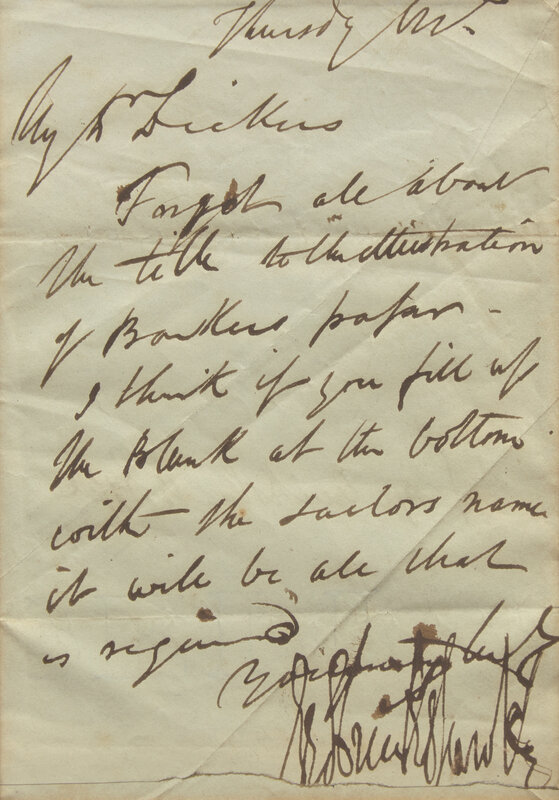 Thursdy
My Dr Dickens
Forgot all about
the title to the illustration
of Barkers paper -
I think if you fill up
the Blank at the bottom
with the sailors name
it will be all that
is required
Yours
Geo Cruikshank